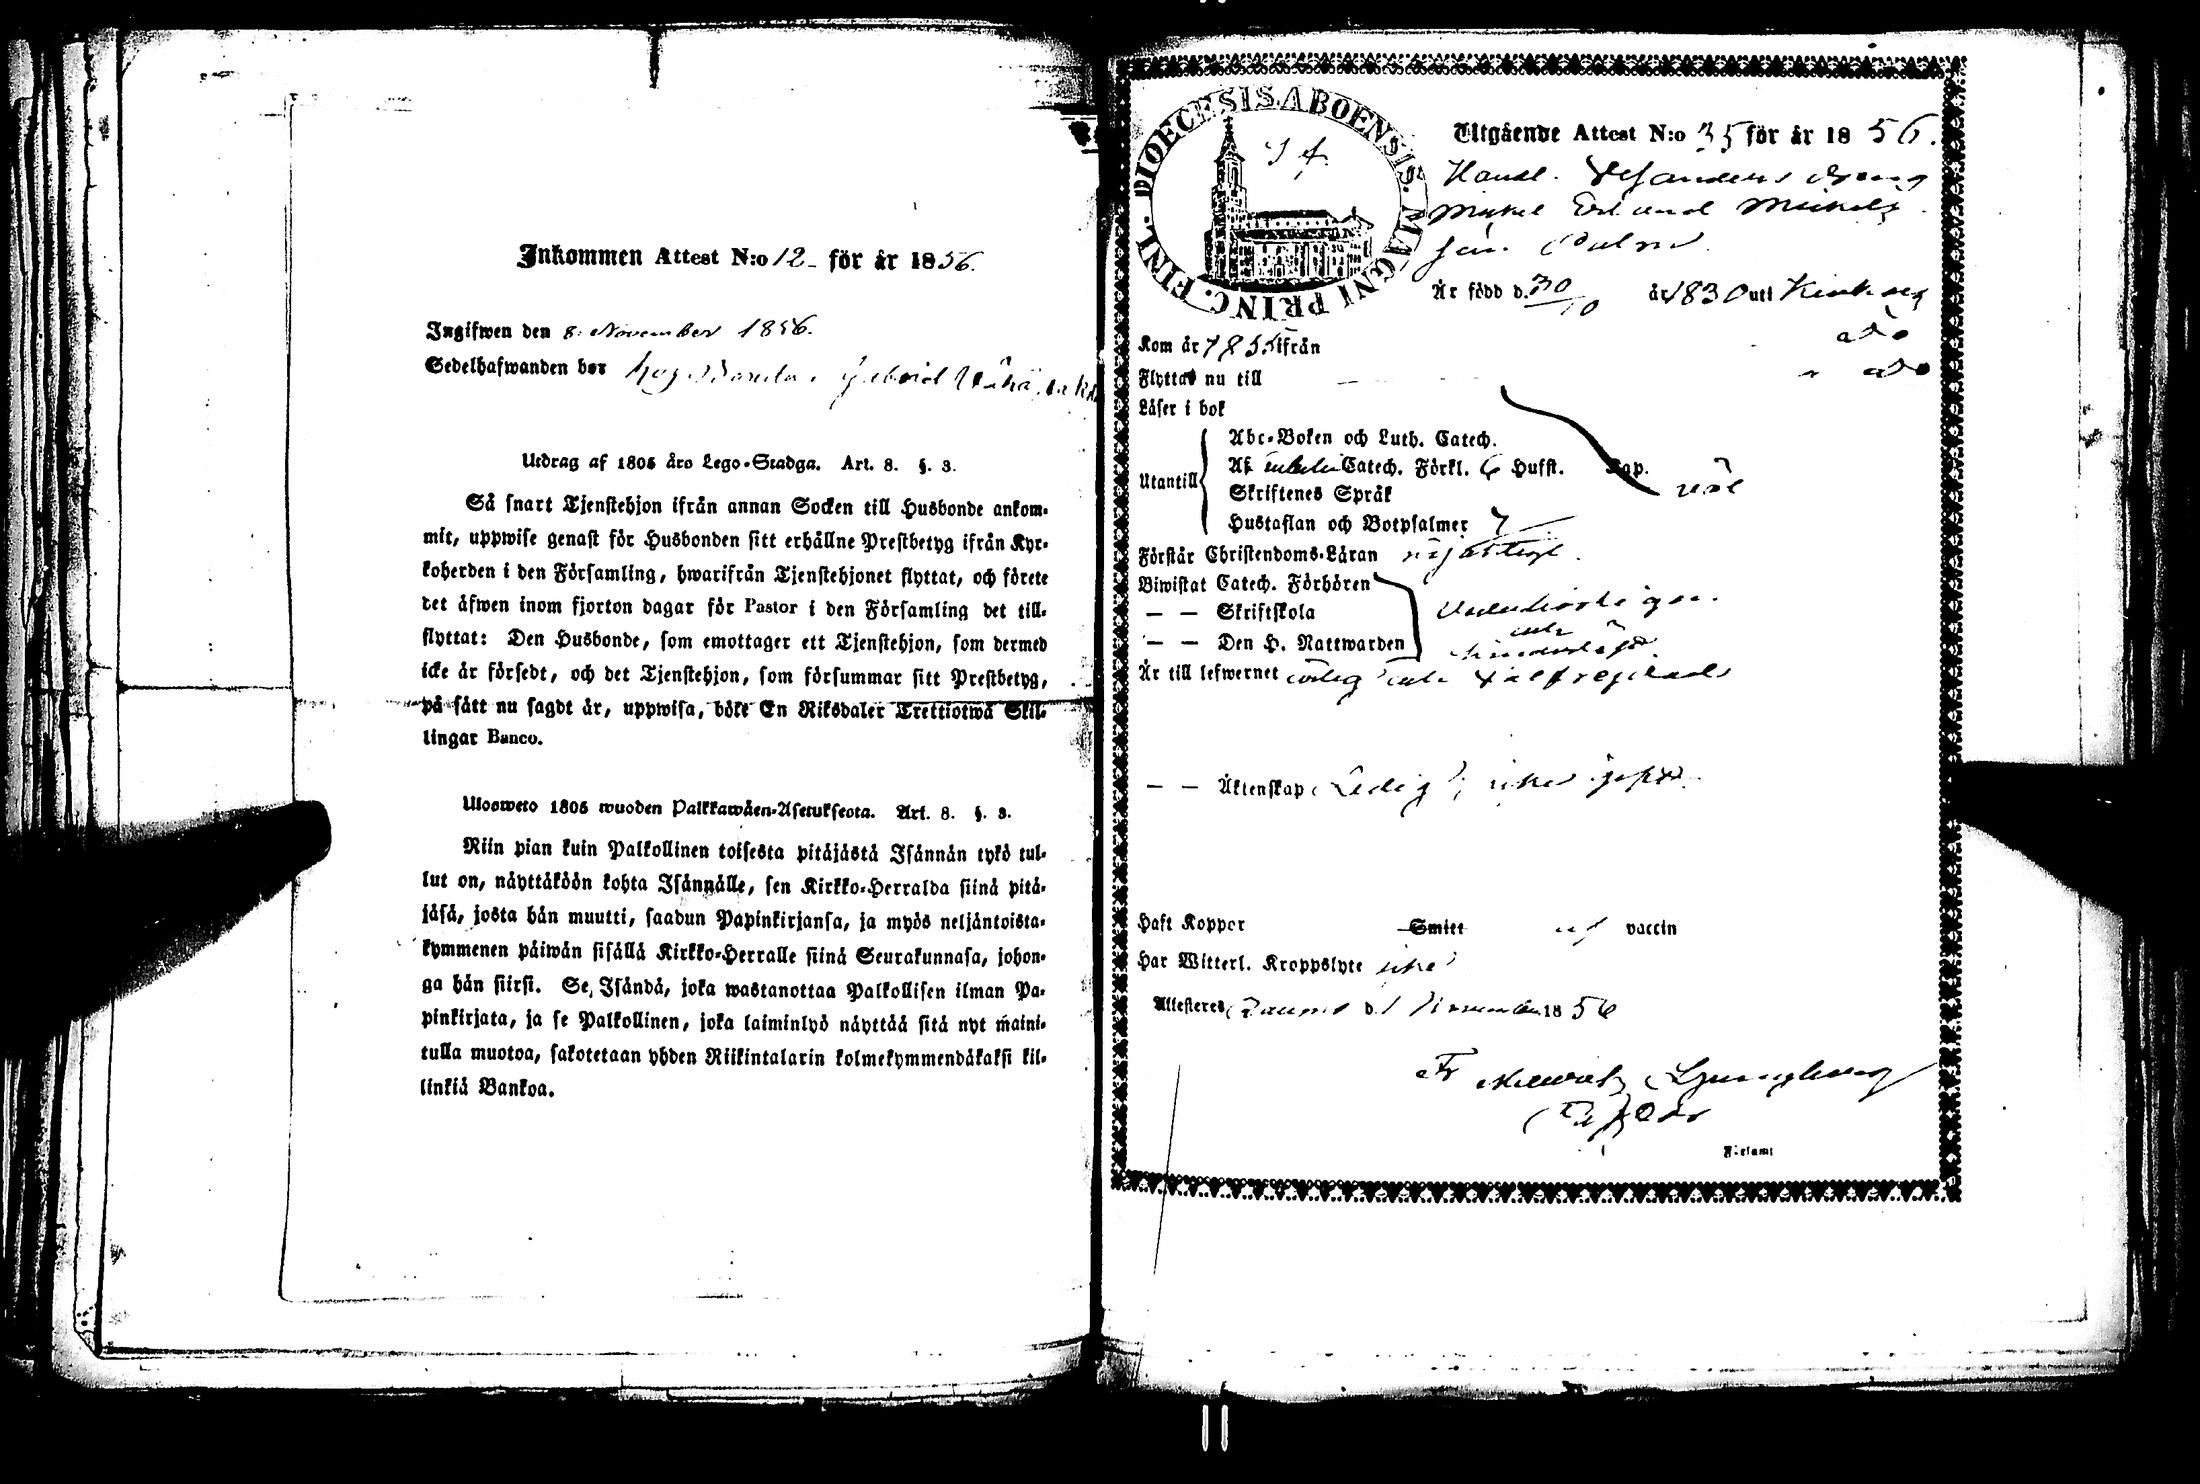 Inkommen Attest N:o 12 för år 1856.
Ingifwen den 8. November 1856.
Sedelhafwanden bor hos Gabriel
Utdrag af 1805 års Lego-Stadga. Art. 8. §. 3.
Så snart Tjenstehjon ifrån annan Socken till Husbonde ankom-
mit, uppwise genast för Husbonden sitt erhållne Prestbetyg ifrån Kyr-
koherden i den Församling, hwarifrån Tjenstehjonet flyttat, och förete
det äfwen inom fjorton dagar för Pastor i den Församling det till-
flyttat: Den Husbonde, som emottager ett Tjenstehjon, som dermed
icke är försedt, och det Tjenstehjon, som försummar sitt Prestbetyg,
på sätt nu sagdt är, uppwisa, böte En Riksdaler Trettiotwå Skil-
lingar Banco.
Ulosweto 1805 wuoden Palkkawäen-Asetuksesta. Art. 8. §. 3.
Niin pian kuin Palkollinen toisesta pitäjästä Isännän tykö tul-
lut on, näyttäköön kohta Isännälle, sen Kirkko-Herralda siinä pitä-
jäsä, josta hän muutti, saadun Papinkirjansa, ja myös neljäntoista-
kymmenen päiwän sisällä Kirkko-Herralle siinä Seurakunnasa, johon-
ga hän siirsi. Se, Isändä, joka wastanottaa Palkollisen ilman Pa-
pinkirjata, ja se Palkollinen, joka laiminlyö näyttää sitä nyt maini-
tulla muotoa, sakotetaan yhden Riikintalarin kolmekymmendäkaksi kil-
linkiä Bankoa.
DIOECESIS ABOENSIS. MAGNI PRINC. FINL.
Utgående Attest N:o 35 för år 1856.
Handl. dräng
Mickel Erland Mickels
son Palm
Är född d. 30/10 år 1830 uti
Kom år 1855 ifrån do
Flyttas nu till do
Läser i bok
Utantill
Abc-Boken och Luth. Catech.
Af Catech. Förkl. 6 Hufst. Kap. väl
Skriftenes Språk
Hustaflan och Botpsalmer 7
Förstår Christendoms-Läran
Biwistat Catech. Förhören
— — Skriftskola
— — Den H. Nattwarden
Är till lefwernet ärlig och välfrejdad
— — Äktenskap Ledig, icke
Haft Koppor Smitt af vaccin
Har Witterl. Kroppslyte icke
Attesteras Raumo d. 1 November 1856
Fr Ljungberg
Pastor